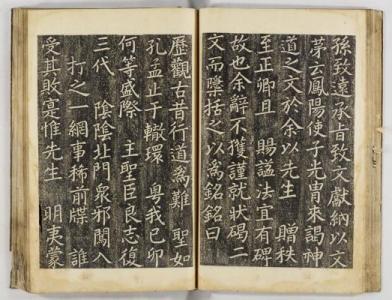 孫致遠承旨致文獻納以文
荣云鳳陽使子光胄來謁神
道之文於余以先生 贈秩
至正卿且 賜諡法宜有碑
故也余辭不獲謹就狀碣二
文而檃括之以爲銘銘曰
歷觀古昔行道爲難 聖如
孔孟止于轍環 粤我己卯
何等盛際 主聖臣良志復
三代 陰陰北門衆邪闖入
打之一網事稀前牒 誰
受其敗寔惟先生 明夷蒙